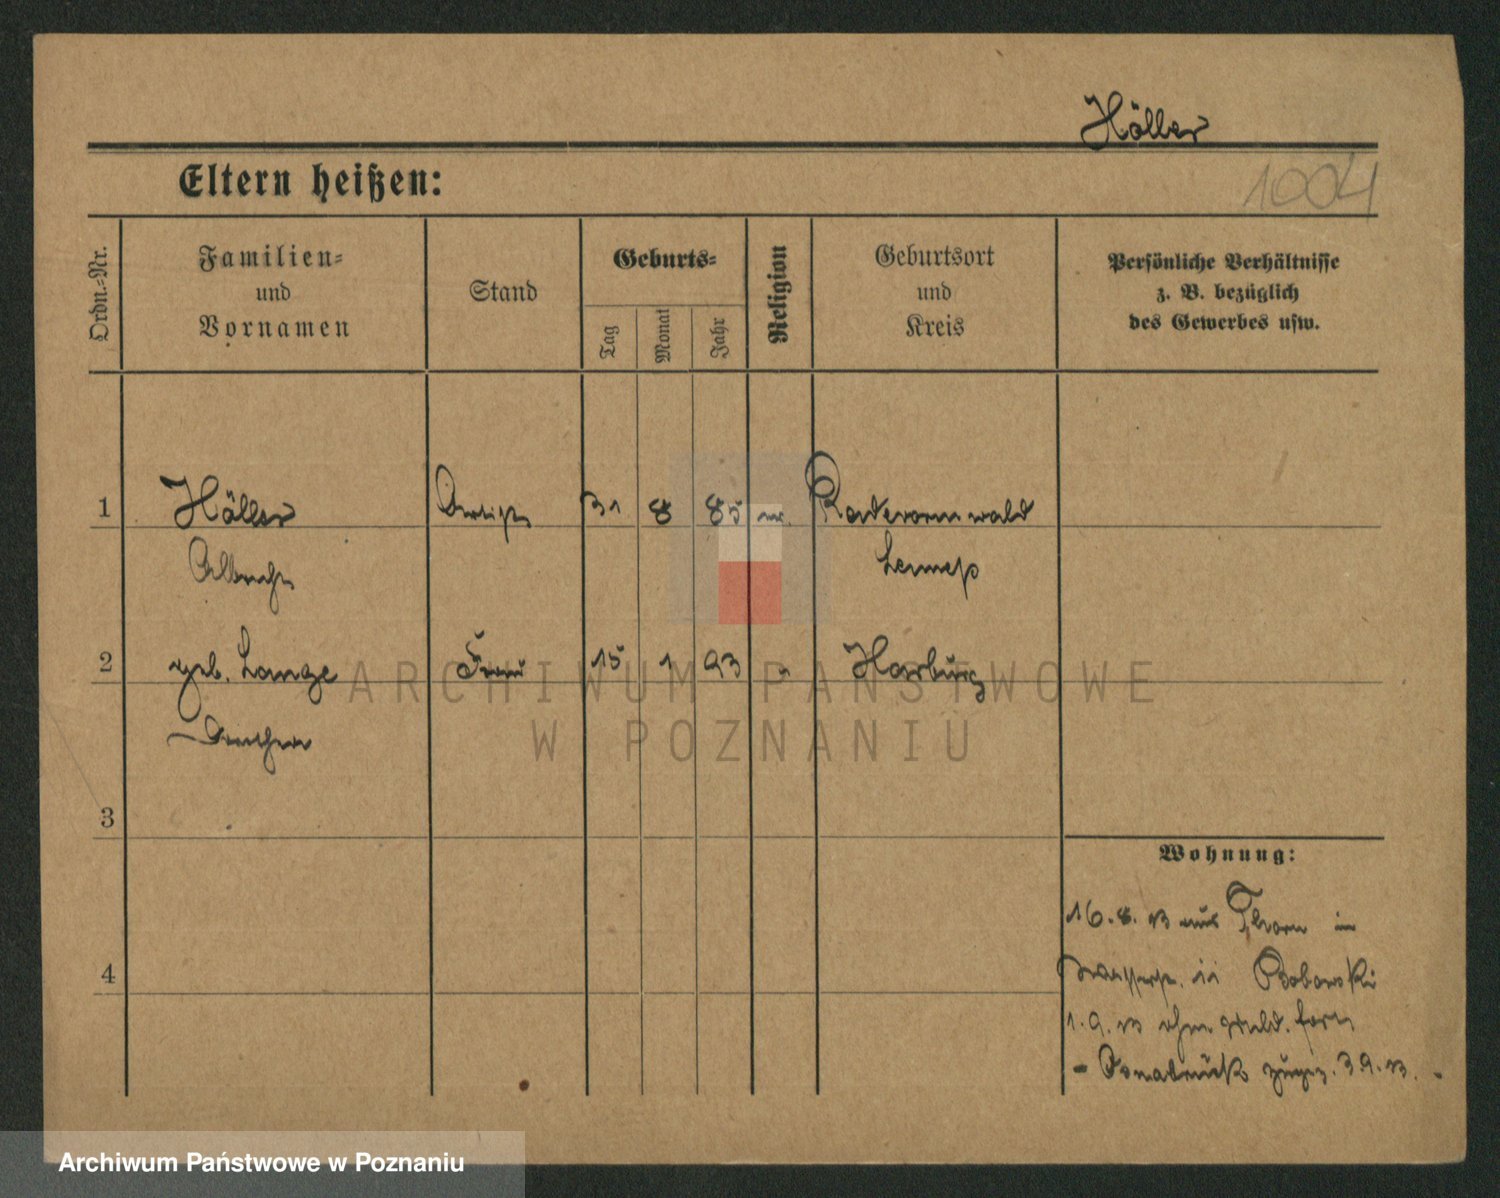 Höller
Eltern heißen:
1004
Ordn.-Nr.
Familien-
und
Vornamen
Stand
Geburts-
Tag
Monat
Jahr
Religion
Geburtsort
und
Kreis
Persönliche Verhältnisse
z. B. bezüglich
des Gewerbes usw.
1 Höller 31 8 85 Radevormwald
Albrecht Lennep
2 geb. Lange Frau 15 1 93 Harburg
3
4
Wohnung:
16.8.13 aus Thorn in
11 Bobowski
1.9.13 ohne Meld. fort
- Osnabrück 3.9.13.
ARCHIWUM PAŃSTWOWE
W POZNANIU
Archiwum Państwowe w Poznaniu